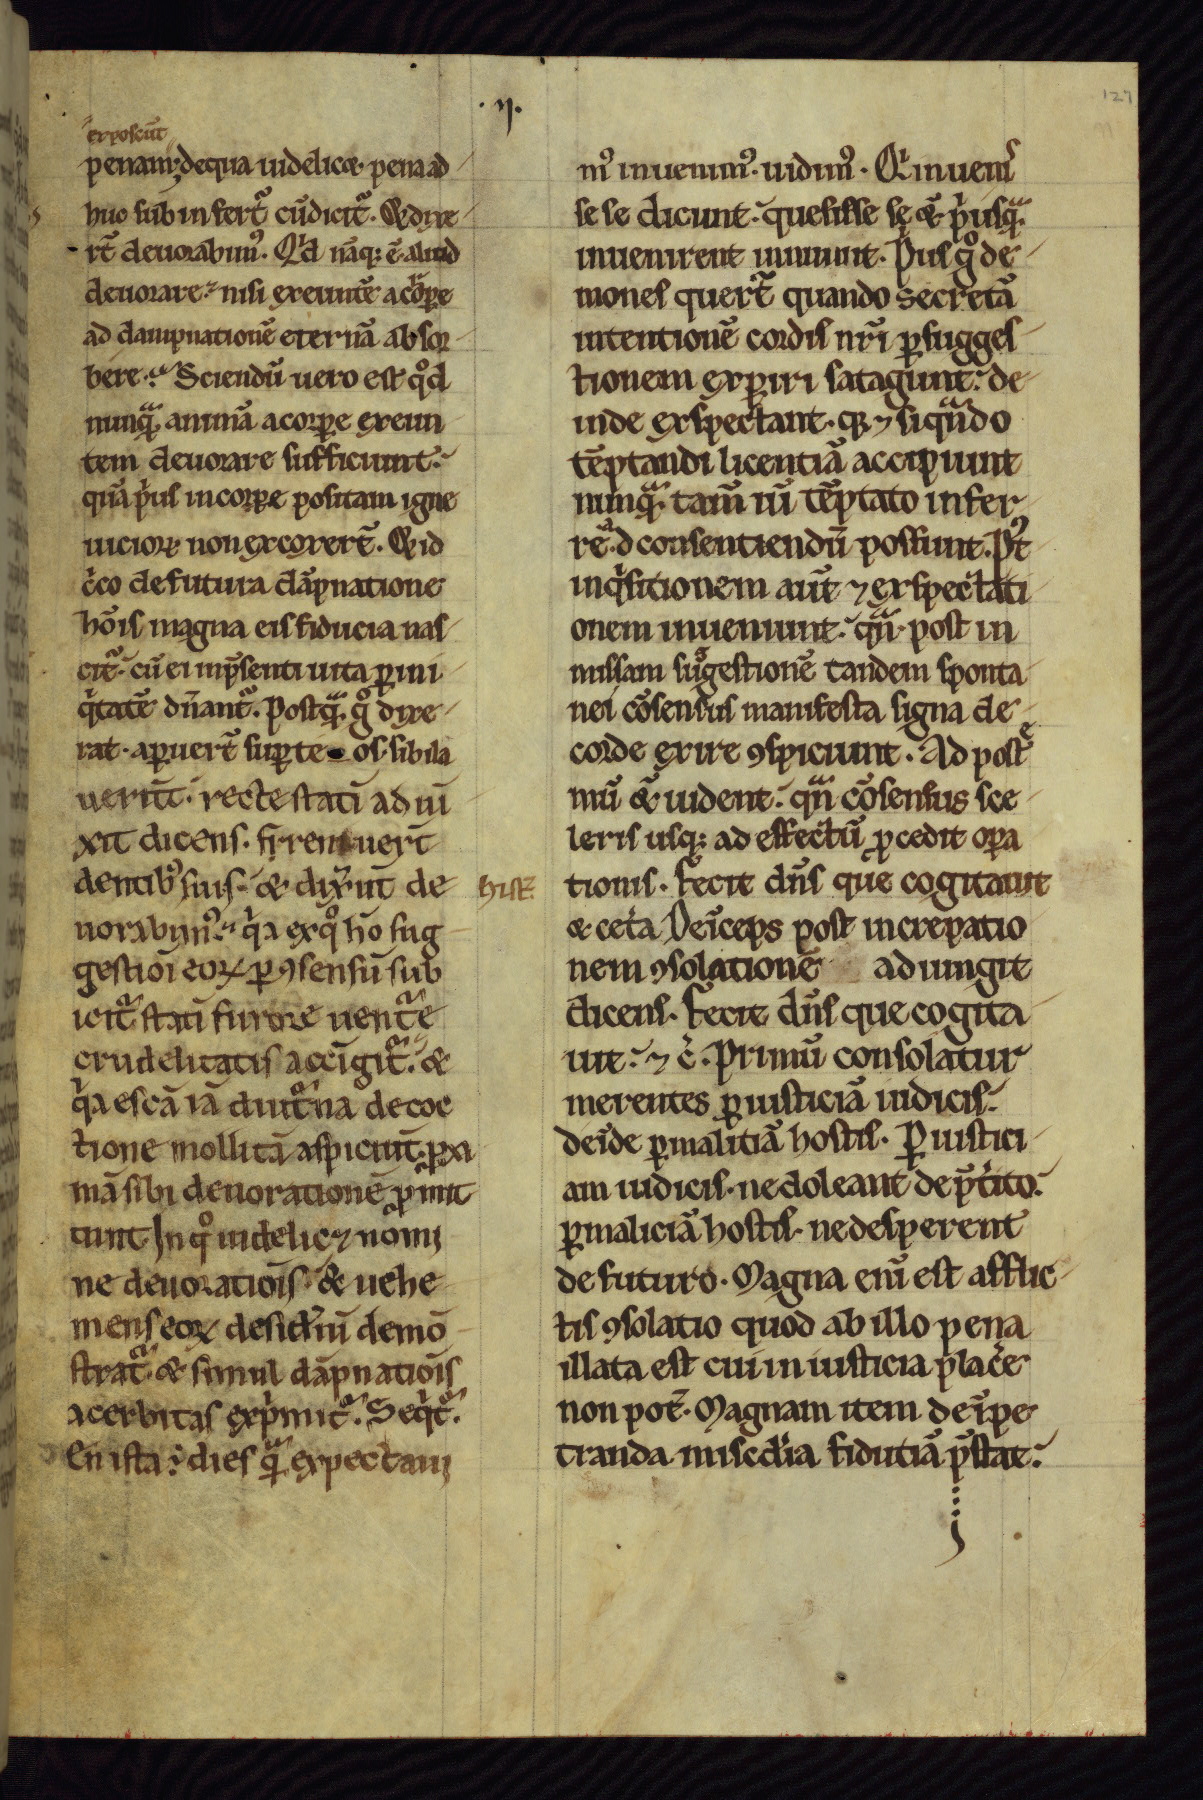 127
.II.
exposcūt
penam; de qua uidelicꝫ pena ad
huc subinfert᷑ cū dicit᷑. & dixe
rt̄ deuorabimꝰ. Qͥd nāqꝫ ē aliud
deuorare? nisi exeuntē a corꝑe
ad dampnationē eternā absor
bere. Sciendū uero est qͦd
nunqᷓ animā a corꝑe exeun
tem deuorare sufficiunt.
quā pͥus in corꝑe positam igne
uicioꝝ non excoxert̄. & id
cͥco de futura dāpnatione
hōis magna eis fiducia nas
cit᷑. cū ei in p̄senti uita ꝑ ini
qͥtatē dn̄ant᷑. Postqᷓ gͦ dixe
rat. aꝑuert̄ suꝑ te os. sibila
uerūt. recte statī adiū
xit dicens. firemuert̄
dentibꝰ suis. & dixr̄ut de
uorabimꝰ. qͥa ex qͦ hō sug
gestioī eoꝝ ꝑ ꝯsensū sub
icit᷑ statī furore uent̄ē
crudelitatis accīgit᷑. &
qͥa escā iā diut᷑na decoc
tione mollitā aspiciūt. ꝓxi
mā sibi deuorationē ꝓmit
tunt In qͦ uidelicꝫ nomi
ne deuoratiōis & uehe
mens eoꝝ desidͥiū demō
strat᷑. & simul dāpnatiōis
acerbitas expͥmit᷑. Seqͥt᷑.
En ista; dies qᷓ expectaui
mꝰ inuenimꝰ. uidimꝰ. Qͥ inueniͥs
se se dicunt. quesisse se & pͥusqᷓ
inuenirent innuunt. Pͥus gͦ de
mones quert̄ quando secretā
intentionē cordis nr̄i ꝑ sugges
tionem experiri satagunt. de
inde exspectant. qꝫ ⁊ si quādo
tēptandi licentiā accipiunt
nunqᷓ tam̄ iū tēptato infer
rē ad consentiendū possunt. Pꝰt
inqͥsitionem aut̄ ⁊ exspectati
onem inueniunt. qn̄ post in
missam suggestionē tandem sponta
nei cōsensus manifesta signa de
corde exire ꝯspiciunt. Ad postre
mū & uident. qn̄ cōsensus sce
leris usqꝫ ad effectū ꝓcedit oꝑa
tionis. Fecit dn̄s que cogitauit
& ceta. Deīceps post increpatio
nem ꝯsolationē adiungit
dicens. Fecit dn̄s que cogita
uit. ⁊ c̄. Primū consolatur
merentes ꝑ iusticiā iudicis.
deīde ꝑ malitiā hostis. Ꝑ iustici
am iudicis. ne doleant de p̄tͥito.
ꝑ maliciā hostis. ne desperent
de futuro. Magna enī est afflic
tis ꝯsolatio quod ab illo pena
illata est cui iniusticia placͤe
non pot̄. Magnam item de īpe
tranda miscdͥia fidutiā p̄stat.
hisř.